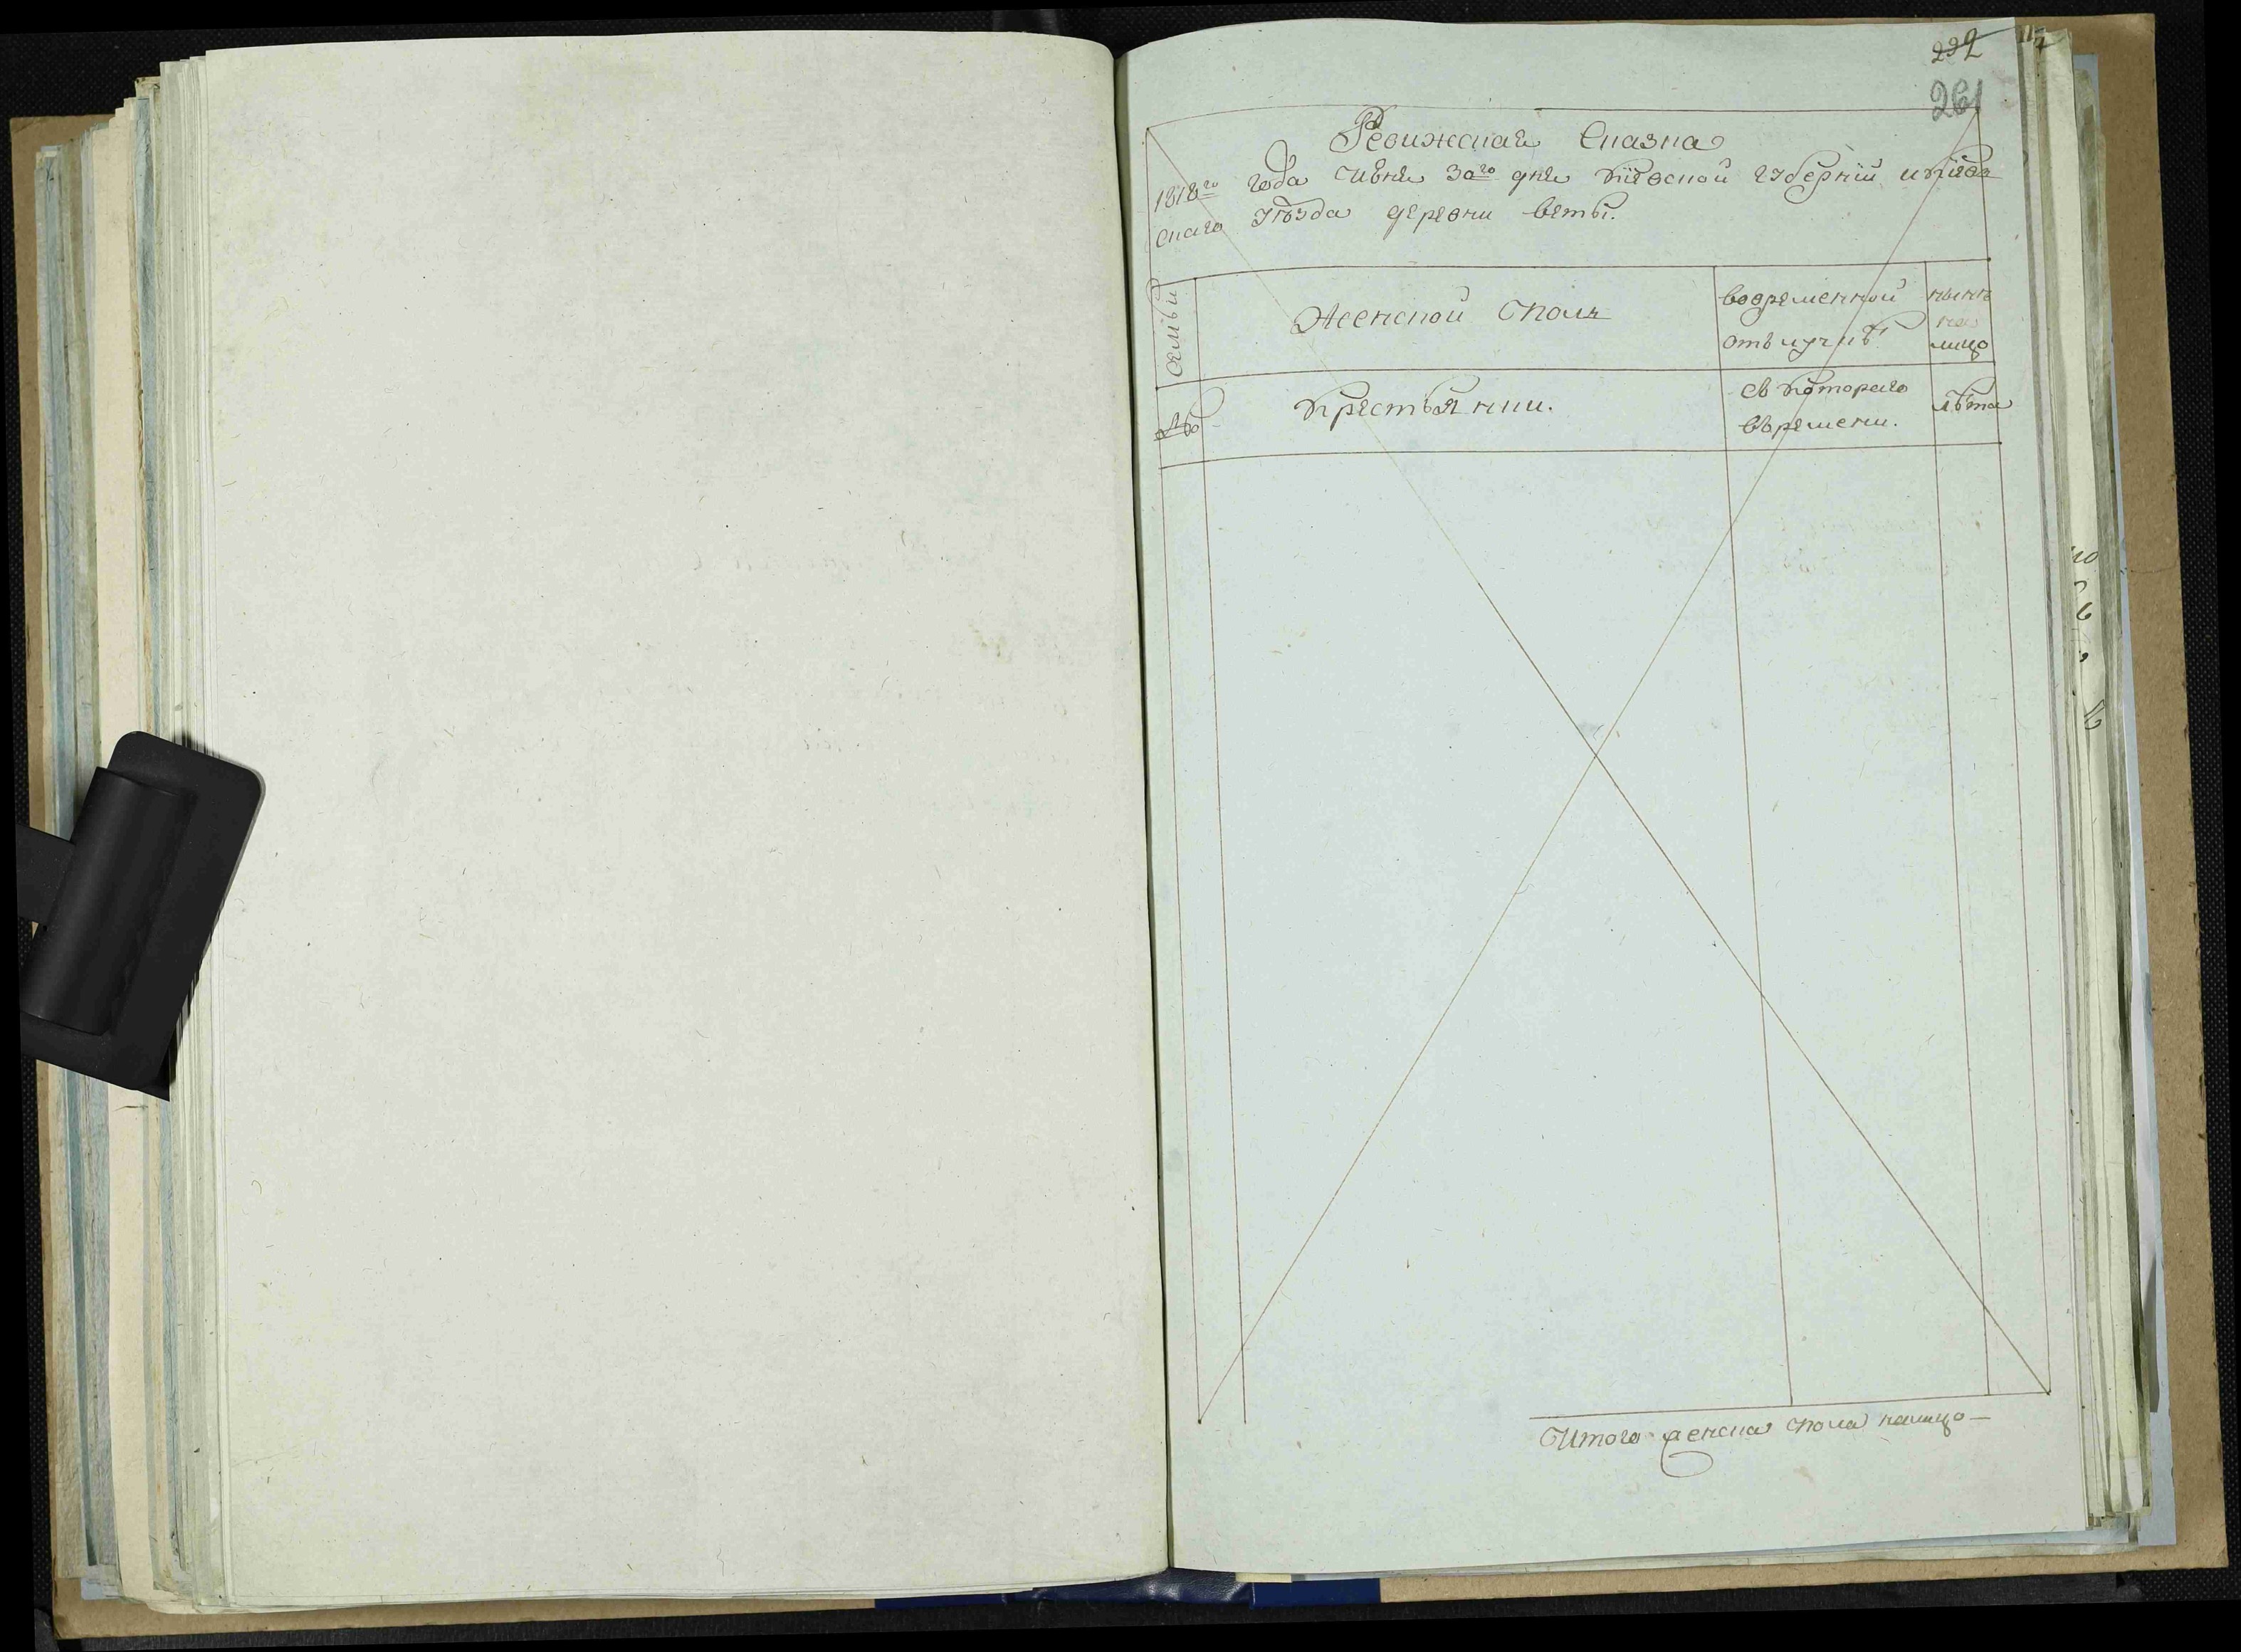 232
261
Ревижская Сказка
1818го года июня 30го дня киевской губернїи и киев
скаго уѣзда деревни веты.
семьи
Женской полъ
вовременной
отълучкѣ
нынѣ
на
лицо
№
крестьянки.
съ котораго
въремени.
лѣта
Итого женска пола налицо